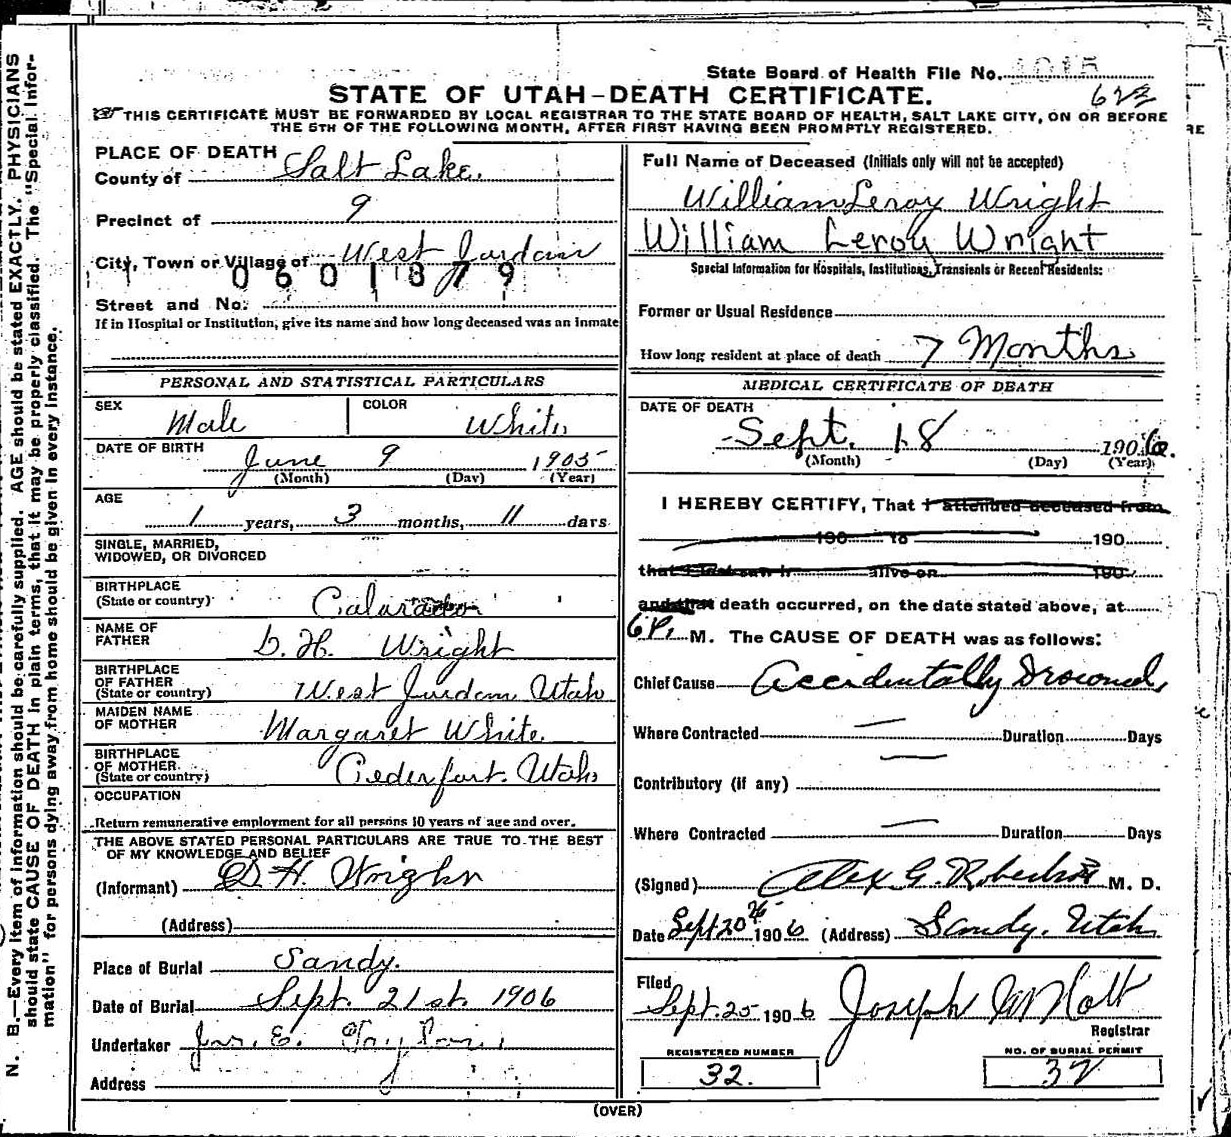 State Board of Health File No. 1015
622
STATE OF UTAH-DEATH CERTIFICATE.
THIS CERTIFICATE MUST BE FORWARDED BY LOCAL REGISTRAR TO THE STATE BOARD OF HEALTH, SALT LAKE CITY, ON OR BEFORE
THE 5TH OF THE FOLLOWING MONTH, AFTER FIRST HAVING BEEN PROMPTLY REGISTERED.
PLACE OF DEATH
County of Salt Lake.
Precinct of 9
City, Town or Village of West Jordan
0601879
Street and No.
If in Hospital or Institution, give its name and how long deceased was an inmate
PERSONAL AND STATISTICAL PARTICULARS
SEX Male COLOR White
DATE OF BIRTH June 9 1905
(Month) (Day) (Year)
AGE
1 years, 3 months, 11 days
SINGLE, MARRIED,
WIDOWED, OR DIVORCED
BIRTHPLACE
(State or country) Colorado
NAME OF
FATHER D. H. Wright
BIRTHPLACE
OF FATHER
(State or country) West Jordan, Utah
MAIDEN NAME
OF MOTHER Margaret White.
BIRTHPLACE
OF MOTHER
(State or country) Cederfort. Utah
OCCUPATION
Return remunerative employment for all persons 10 years of age and over.
THE ABOVE STATED PERSONAL PARTICULARS ARE TRUE TO THE BEST
OF MY KNOWLEDGE AND BELIEF
(Informant) D H. Wright
(Address)
Place of Burial Sandy.
Date of Burial Sept. 21st. 1906
Undertaker Jos. E. Taylor
Address
Full Name of Deceased (Initials only will not be accepted)
William Leroy Wright
William Leroy Wright
Special Information for Hospitals, Institutions, Transients or Recent Residents:
Former or Usual Residence
How long resident at place of death 7 Months
MEDICAL CERTIFICATE OF DEATH
DATE OF DEATH
Sept. 18 1906.
(Month) (Day) (Year)
I HEREBY CERTIFY, That I attended deceased from
190 to 190
that I last saw h alive on 190
and that death occurred, on the date stated above, at
6 P. M. The CAUSE OF DEATH was as follows:
Chief Cause Accidentally Drowned
Where Contracted — Duration Days
Contributory (if any) —
Where Contracted — Duration Days
(Signed) Alex G. Robertson M. D.
Date Sept 20th 1906 (Address) Sandy. Utah
Filed
Sept. 25 1906 Joseph M Holt
Registrar
REGISTERED NUMBER
32.
NO. OF BURIAL PERMIT
32
(OVER)
N. B.—Every item of information should be carefully supplied. AGE should be stated EXACTLY. PHYSICIANS
should state CAUSE OF DEATH in plain terms, that it may be properly classified. The "Special Infor-
mation" for persons dying away from home should be given in every instance.